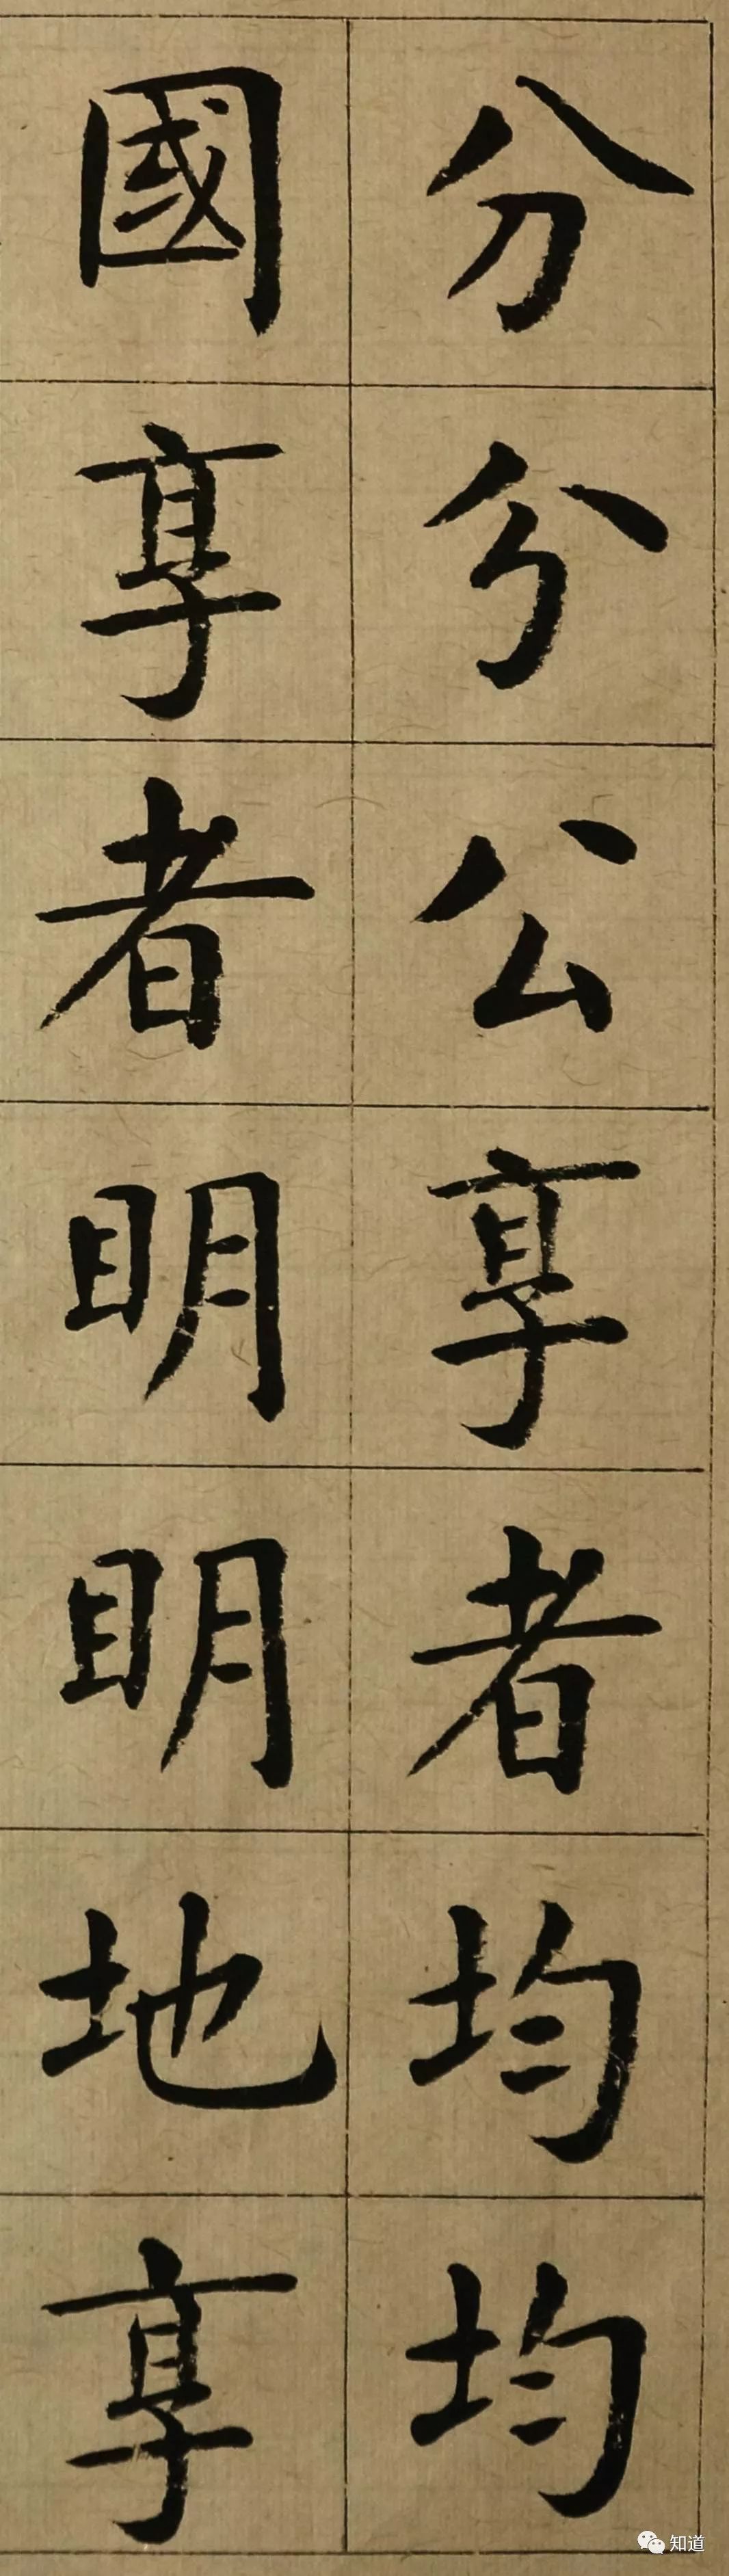 分分公享者均均
國享者明明地享
知道